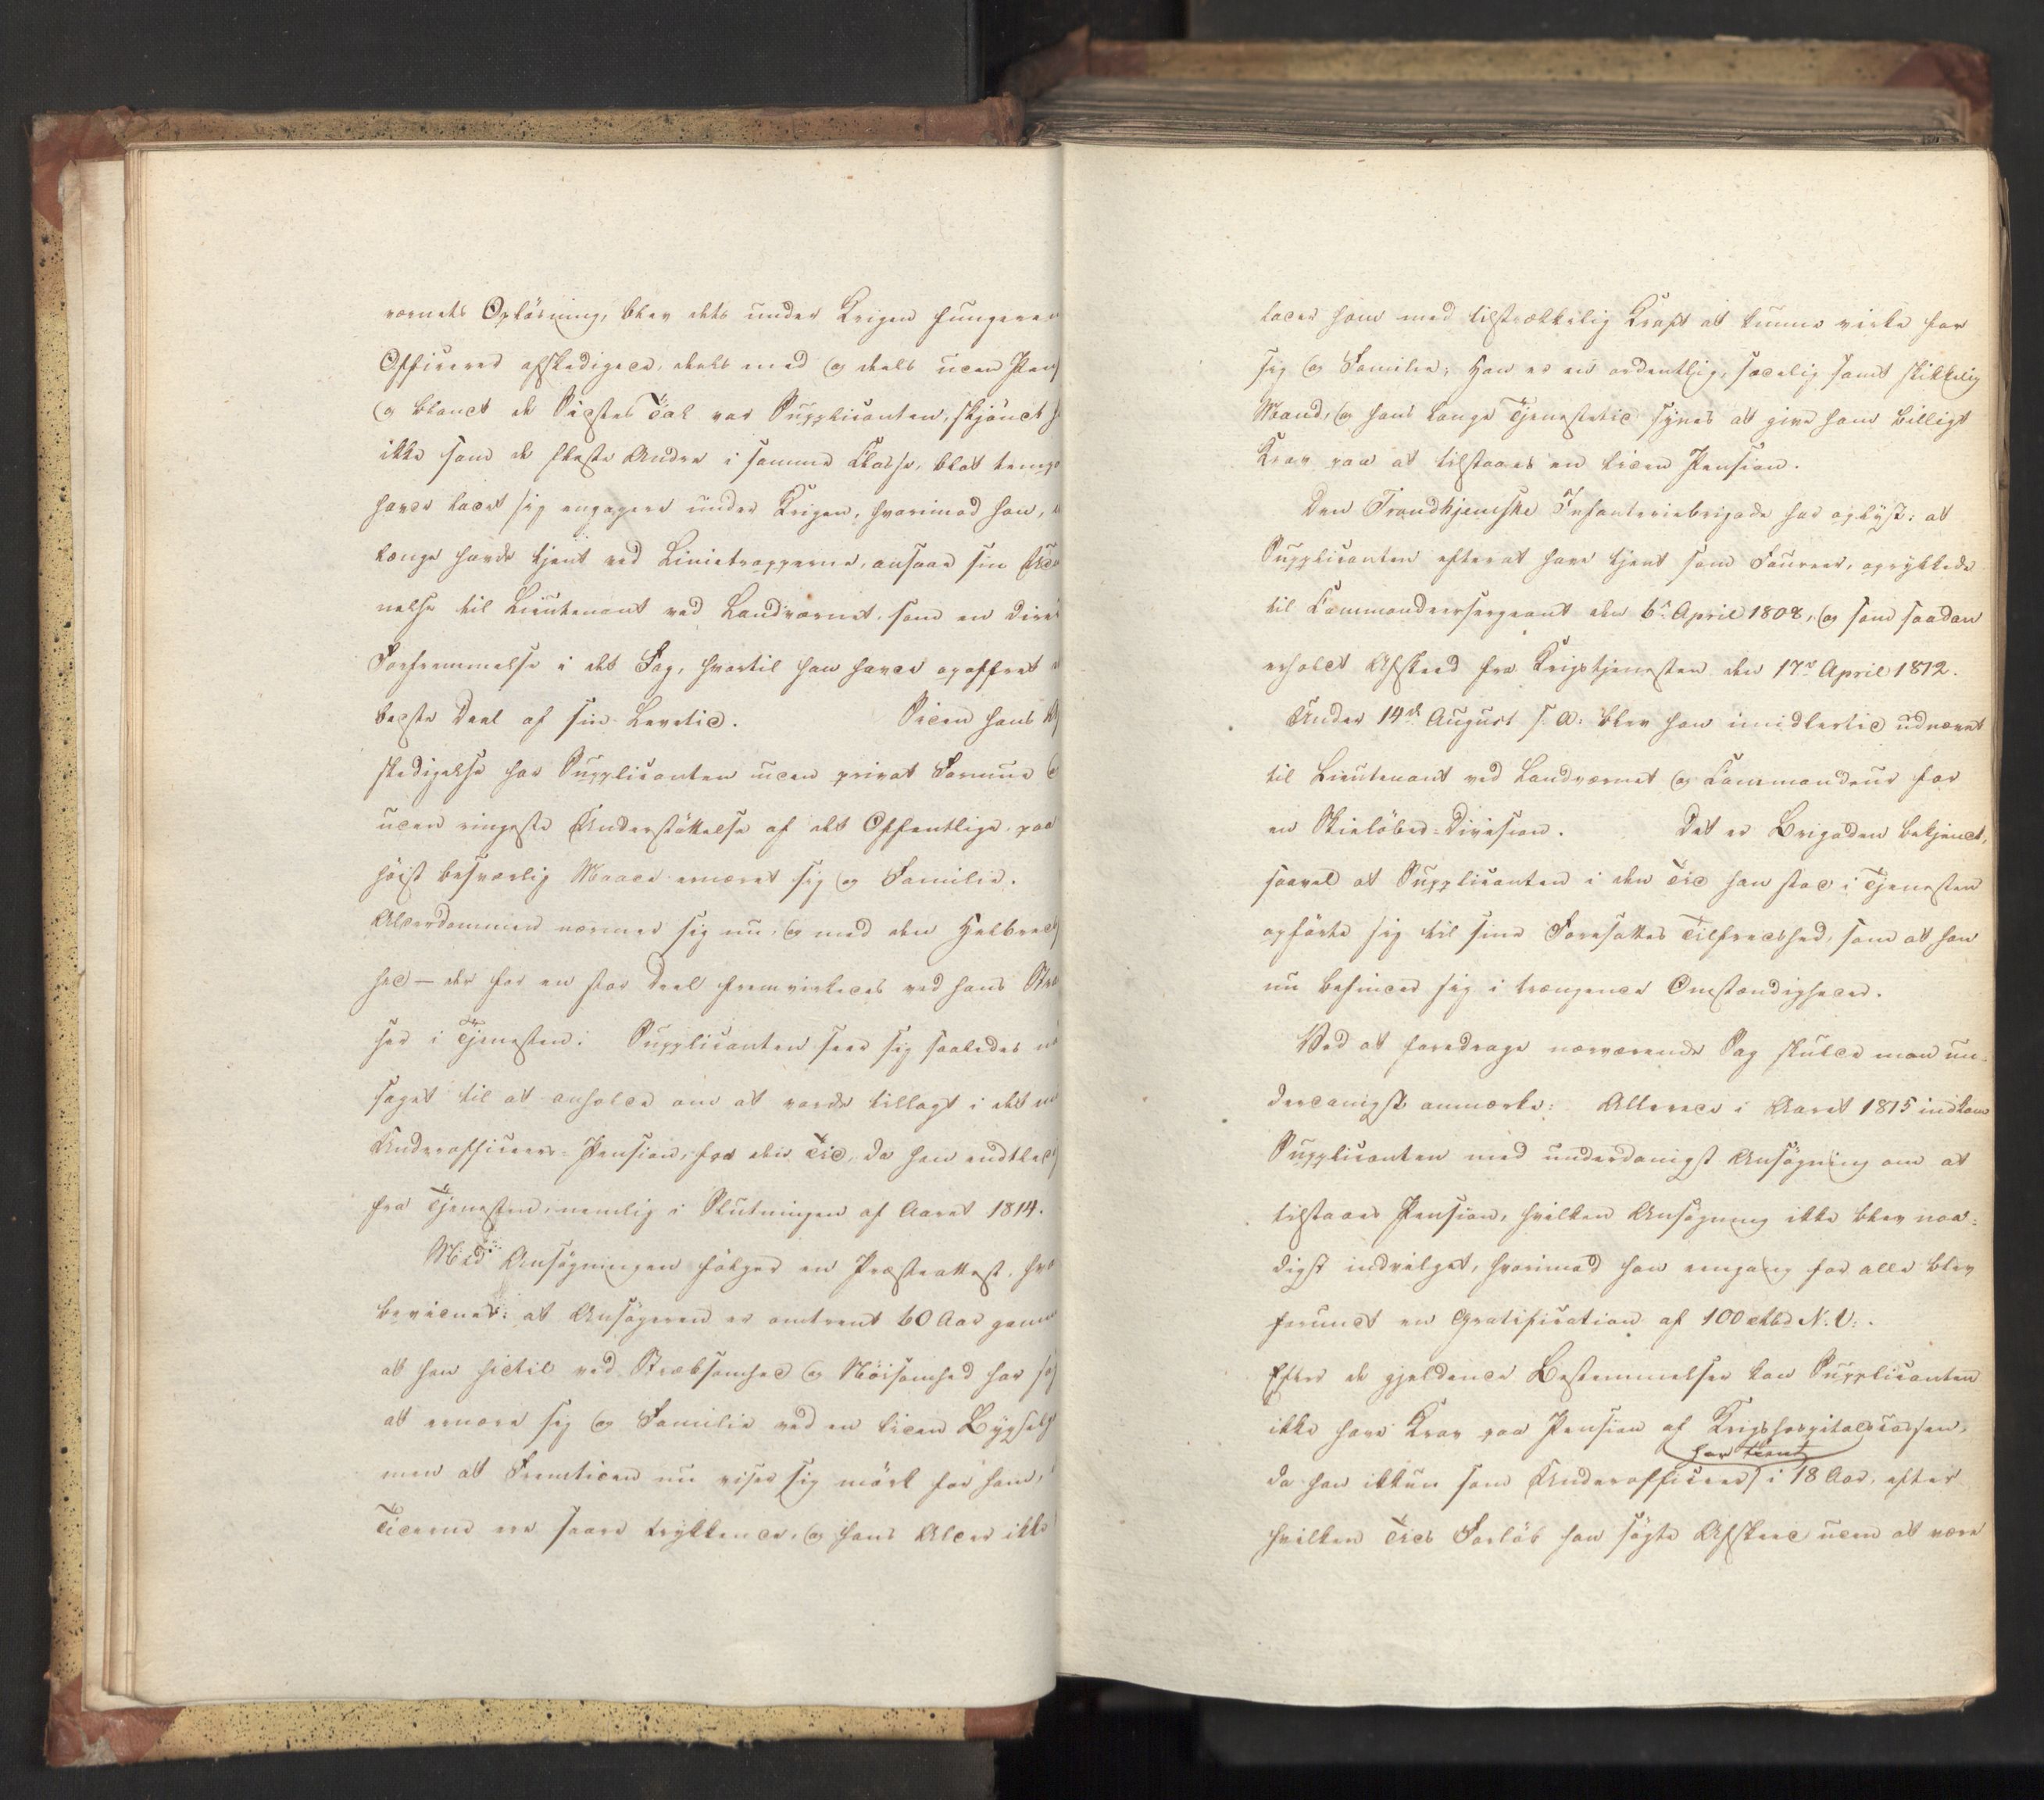 værnets Opløsning, blev dets under Krigen fungeren
Officerer afskedigede, deels med og deels uden Pens
og blandt de Sidstes Tal var Supplicanten, skjøndt h
ikke som de fleste Andre i samme Classe, blot temp
havde ladet sig engagere under Krigen, hvorimod han,
længe havde tjent ved Linietropperne, ansaae sin Ud
nelse til Lieutenant ved Landværnet, som en Dire
Forfremmelse i det Fag, hvortil han havde opoffret
bedste Deel af sin Levetid. Siden hans Af
skedigelse har Supplicanten uden privat Formue
uden ringeste Understøttelse af det Offentlige, paa
høist besværlig Maade ernæret sig og Familie.
Alderdommen nærmer sig nu, og med den
hed – der for en stor Deel fremvirkedes ved hans
ser i Tjenesten: Supplicanten seer sig saaledes
saget til at anholde om at vorde tillagt i det
Underofficeers-Pension, fra den Tid, da han endtled
fra Tjenesten, nemlig i Slutningen af Aaret 1814.
Med Ansøgningen følger en Præsteattest, hvo
bevidner: at Ansøgeren er omtrent 60 Aar gam
at han hidtil ved Stræbsomhed og Nøisomhed har søg
at ernære sig og Familie ved en liden Bygsel
men at Fremtiden nu viser sig mørk for ham,
Tiderne ere saare trykkende, og hans Alder ikke
lader ham med tilstrækkelig Kraft at kunne virke for
sig og Familie; Han er en ordentlig, sædelig samt skikkelig
Mand, og hans lange Tjenestetid synes at give ham billigt
Krav paa at tilstaaes en liden Pension.
Den Trondhjemske Infanteriebrigade har oplyst: at
Supplicanten efterat have tjent som Foureer, oprykkede
til Commandeersergeant den 6te April 1808, og som saadan
erholdt Afskeed fra Krigstjenesten den 17de April 1812.
Under 14de August s. A. blev han imidlertid udnævnt
til Lieutenant ved Landværnet og Commandeur for
en Skieløber-Division. Det er Brigaden bekjendt,
saavel at Supplicanten i den Tid han stod i Tjenesten
opførte sig til sine Foresattes Tilfredshed, som at han
nu befinder sig i trængende Omstændigheder.
Ved at foredrage nærværende Sag skulde man un-
derdanigst anmærke: Allerede i Aaret 1815 indkom
Supplicanten med underdanigst Ansøgning om at
tilstaaes Pension, hvilken Ansøgning ikke blev naa-
digst indvilget, hvorimod han eengang for alle blev
forundt en Gratification af 100 Rbd N.V.
Efter de gjeldende Bestemmelser kan Supplicanten
ikke have Krav paa Pension af Krigshospitalscassen,
har tient
da han ikkun som Underofficeer i 18 Aar, efter
hvilken Tids Forløb han søgte Afskeed uden at være